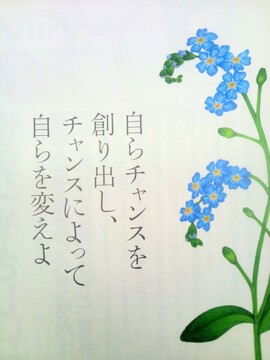 自らチャンスを
創り出し、
チャンスによって
自らを変えよ